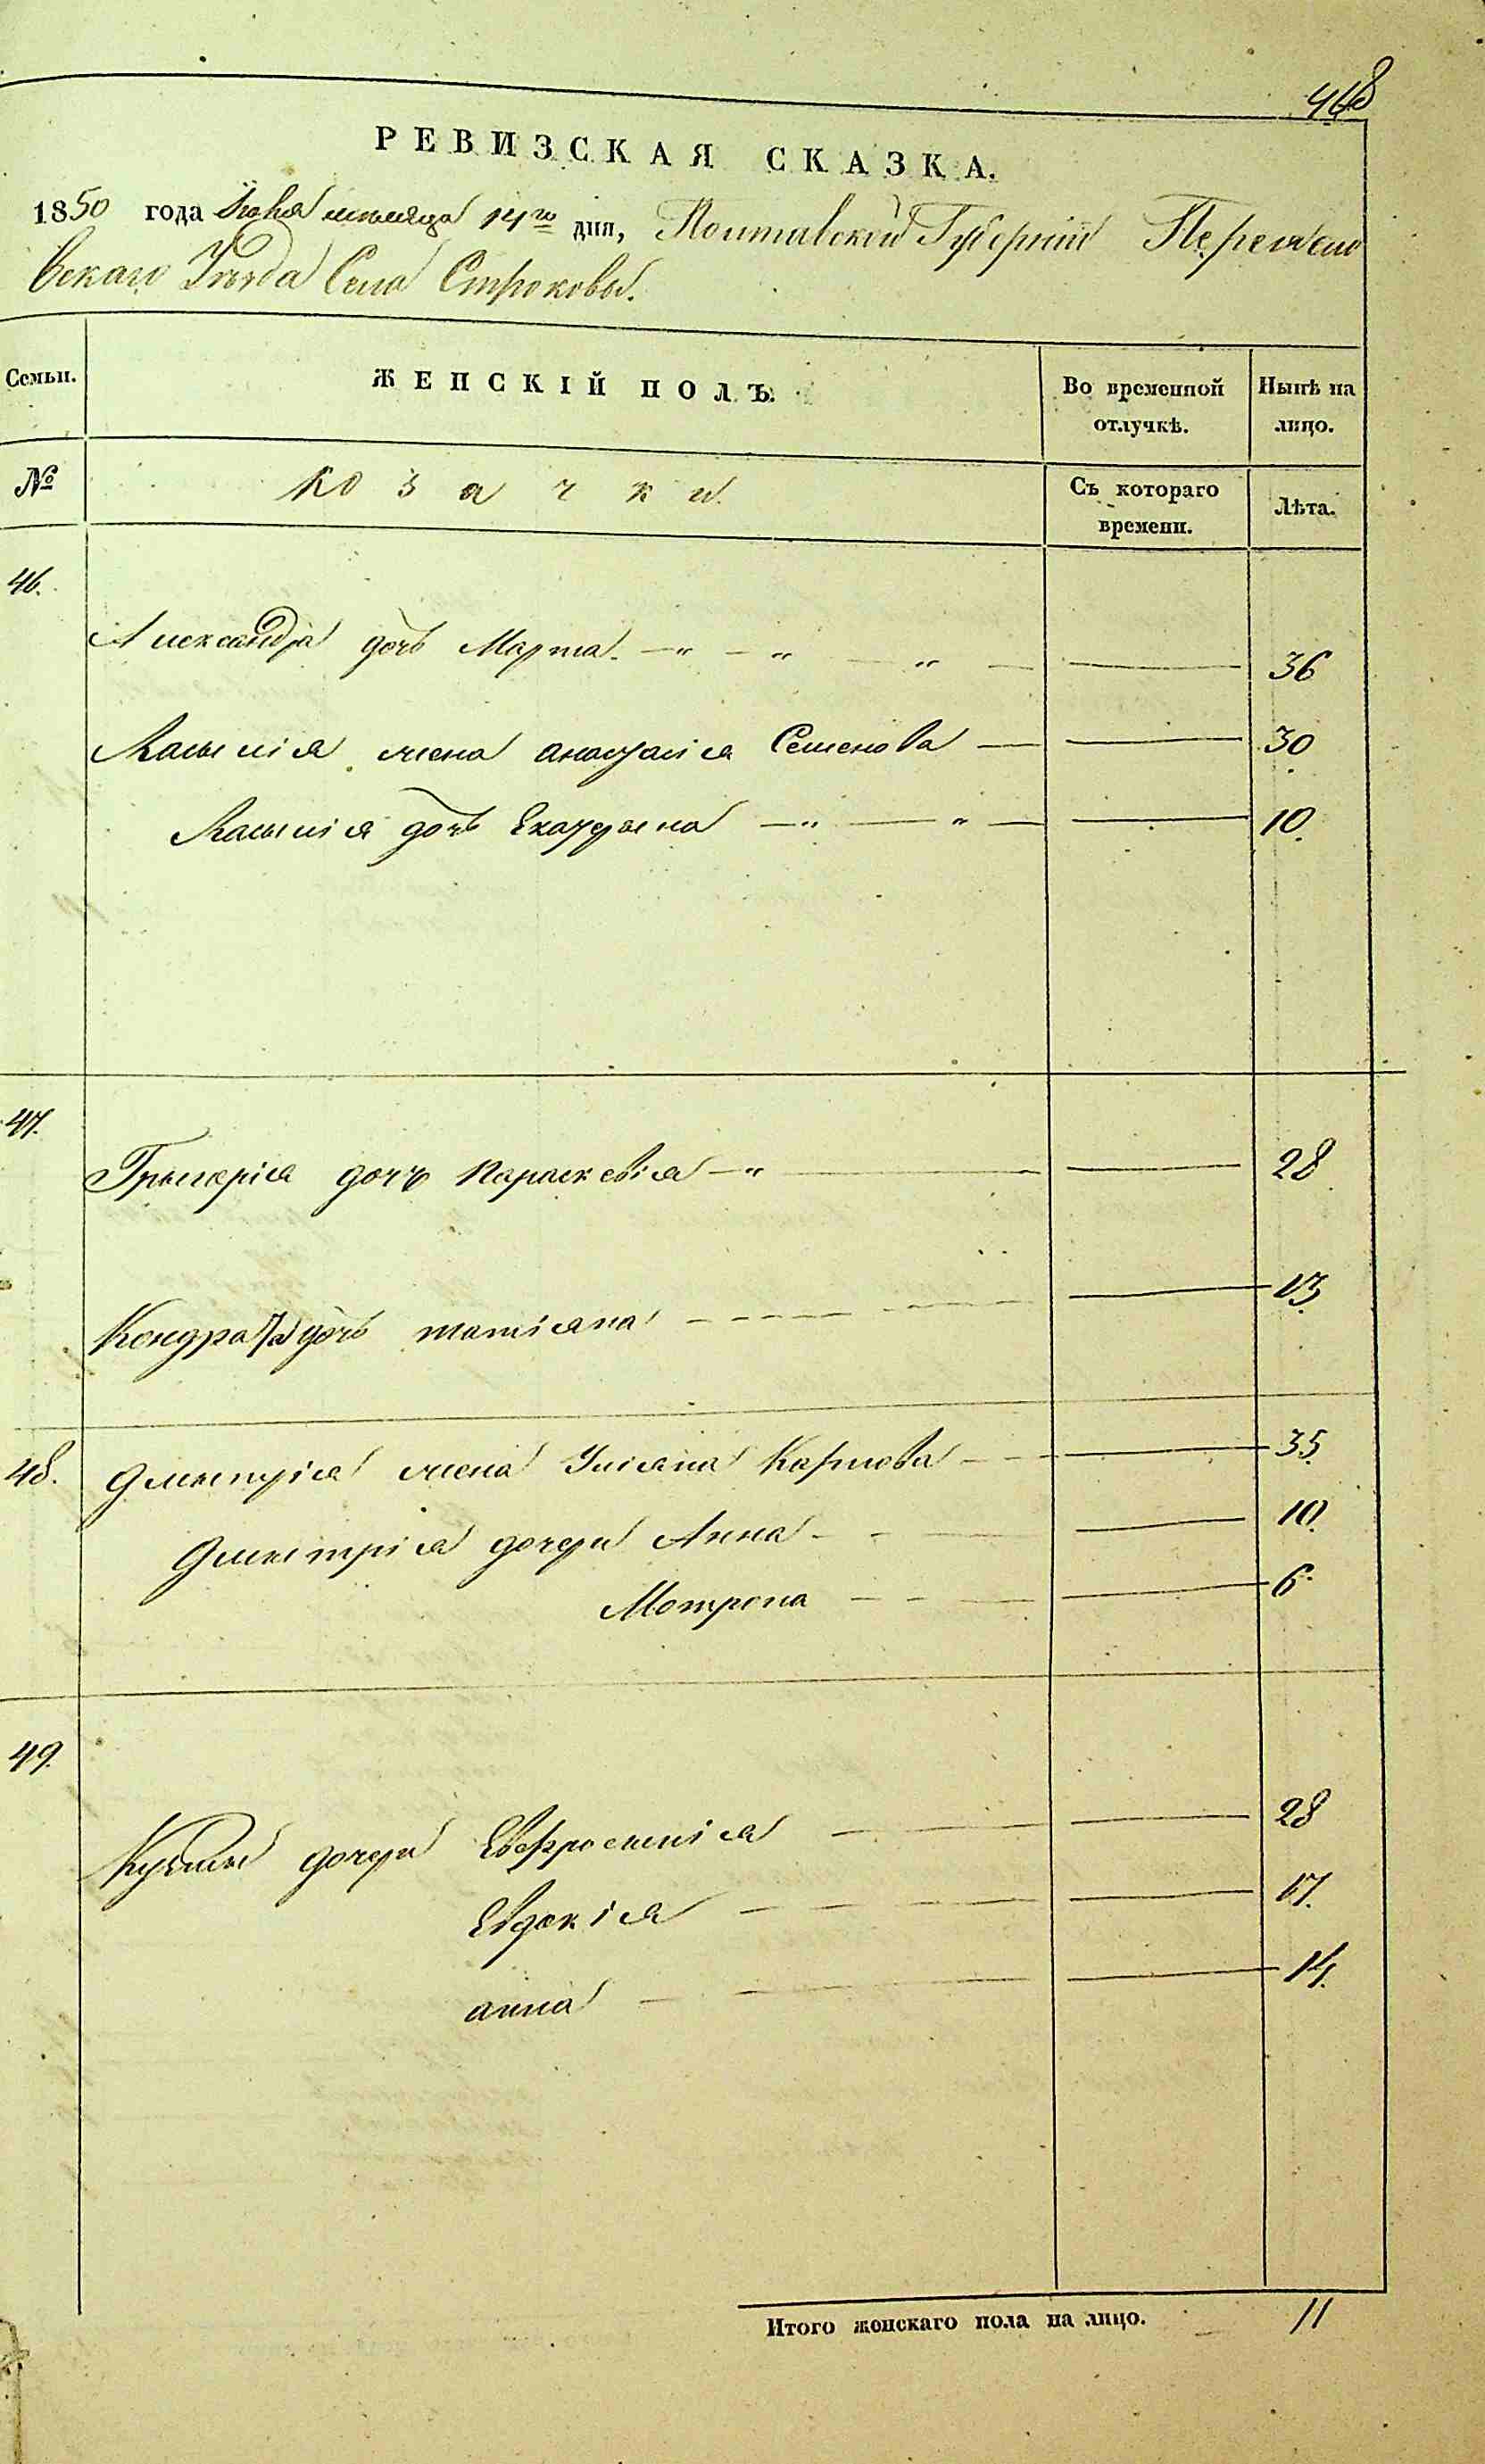 468
РЕВИЗСКАЯ СКАЗКА.
1850 года Іюня месяца 14го дня, Полтавской Губерніи Переясло
вскаго Уѣзда Села Строковы.
Семьи.
ЖЕНСКІЙ ПОЛЪ.
Во временной отлучкѣ.
Нынѣ на лицо.
№
козачки
Съ котораго времени.
Лѣта.
46.
Александра дочь Марта 36
жена анастасія Семенова 30
дочь Екатерина 10.
47.
Григорія дочь Параскевія 28
Кондрата дочь татіяна 13
48. Дмитрія жена Уліяна Карпова 35
Дмитрія дочери Анна 10.
Мотрона 6
49.
Кузмы дочери Евфросинія 28
Евдокія 17.
анна 14.
Итого женскаго пола на лицо. 11